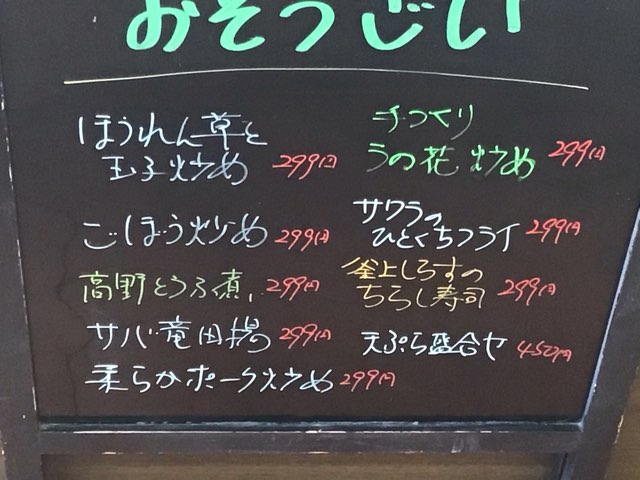 おそうざい
ほうれん草と
玉子炒め 299円
ごぼう炒め 299円
高野とうふ煮 299円
サバ竜田揚 299円
柔らかポーク炒め 299円
手づくり
うの花炒め 299円
サワラの
ひとくちフライ 299円
釜上しらすの
ちらし寿司 299円
天ぷら盛合せ 450円